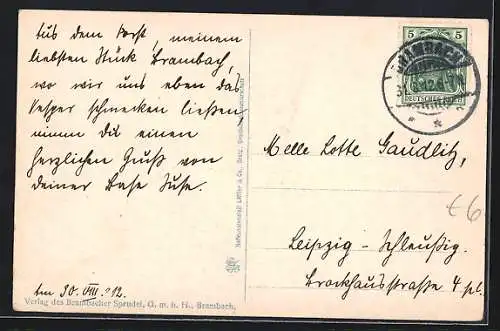 Aus dem Forst, meinem
liebsten Stück Brambach,
wo wir uns eben das
Vesper schmecken ließen
nimm Du einen
herzlichen Gruß von
Deiner Base Suse.
Am 30. VIII. 12.
Verlag des Brambacher Sprudel, G. m. b. H., Brambach.
5 5
BRAMBACH
DEUTSCHES REICH
Melle Lotte Gaudlitz,
Leipzig - Schleußig.
Brockhausstraße 4 pt.
€6